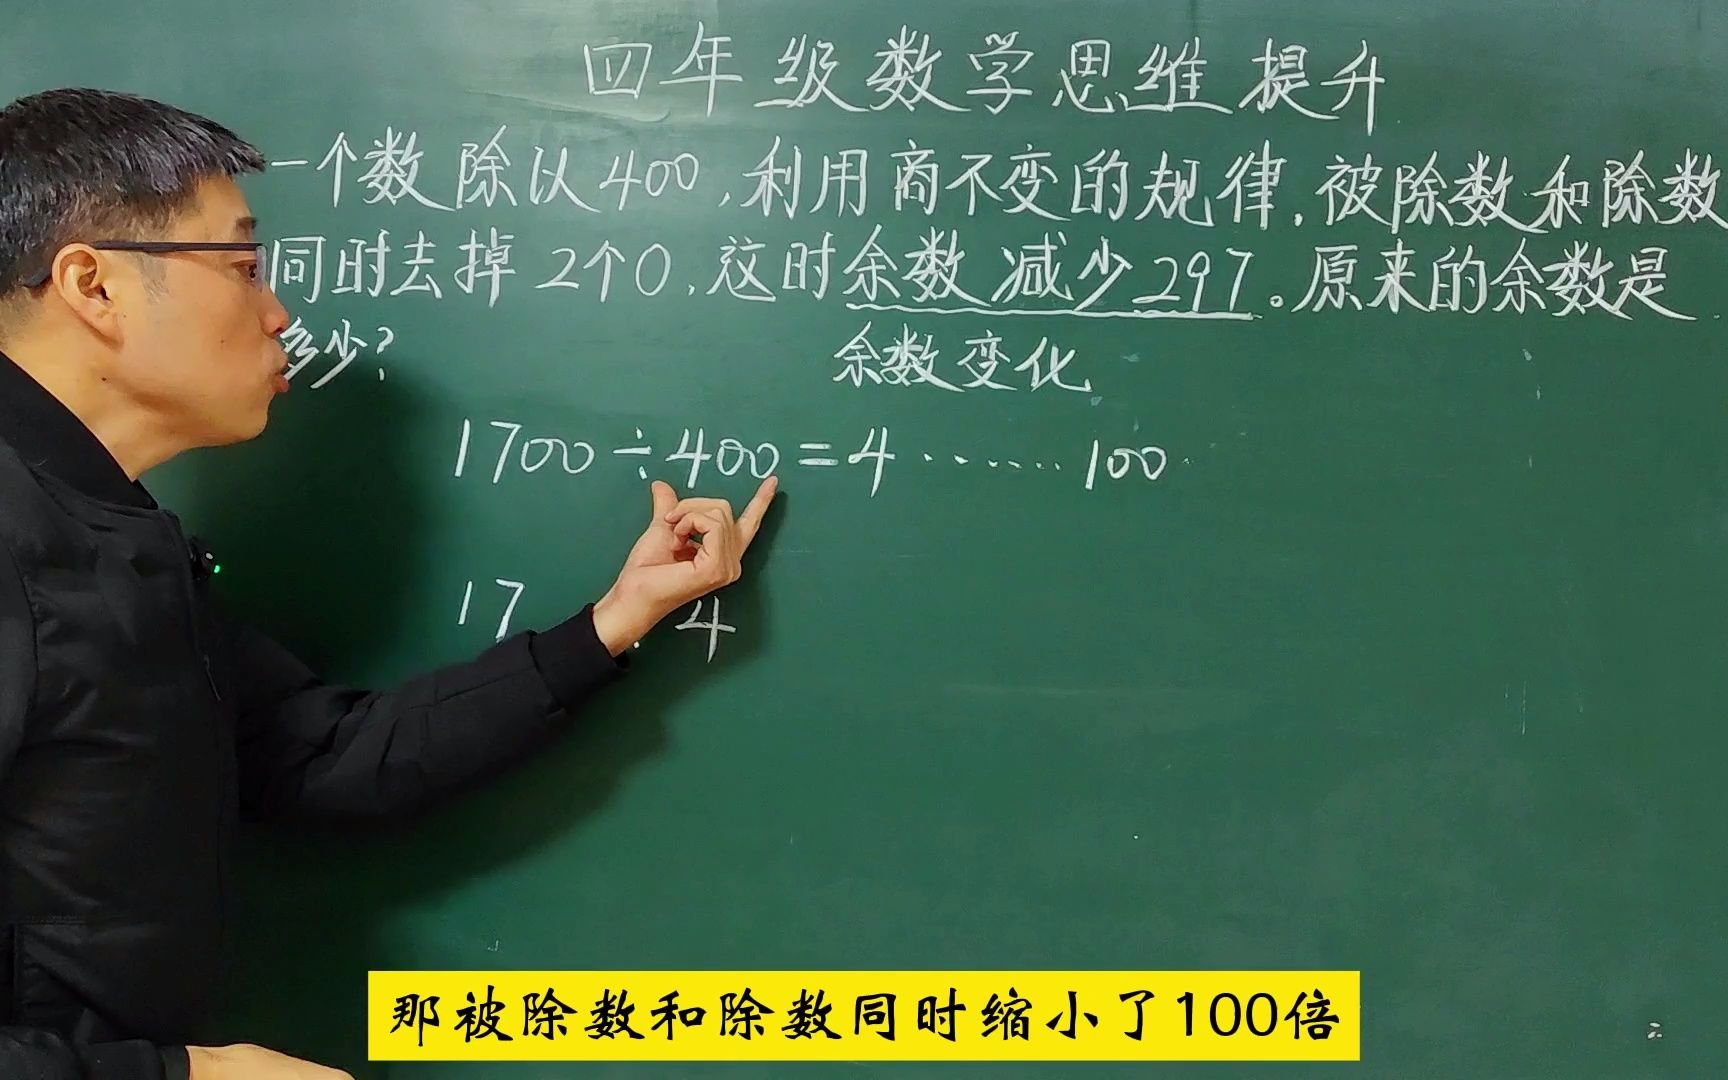 四年级数学思维提升
一个数除以400,利用商不变的规律,被除数和除数
同时去掉2个0,这时余数减少297。原来的余数是
多少?
余数变化
1700÷400=4……100
17÷4
那被除数和除数同时缩小了100倍